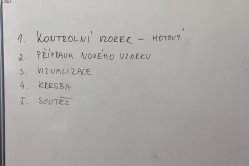 1. KONTROLNÍ VZOREK – HOTOVÝ
2. PŘÍPRAVA NOVÉHO VZORKU
3. VIZUALIZACE
4. KRESBA
5. SOUTĚŽ